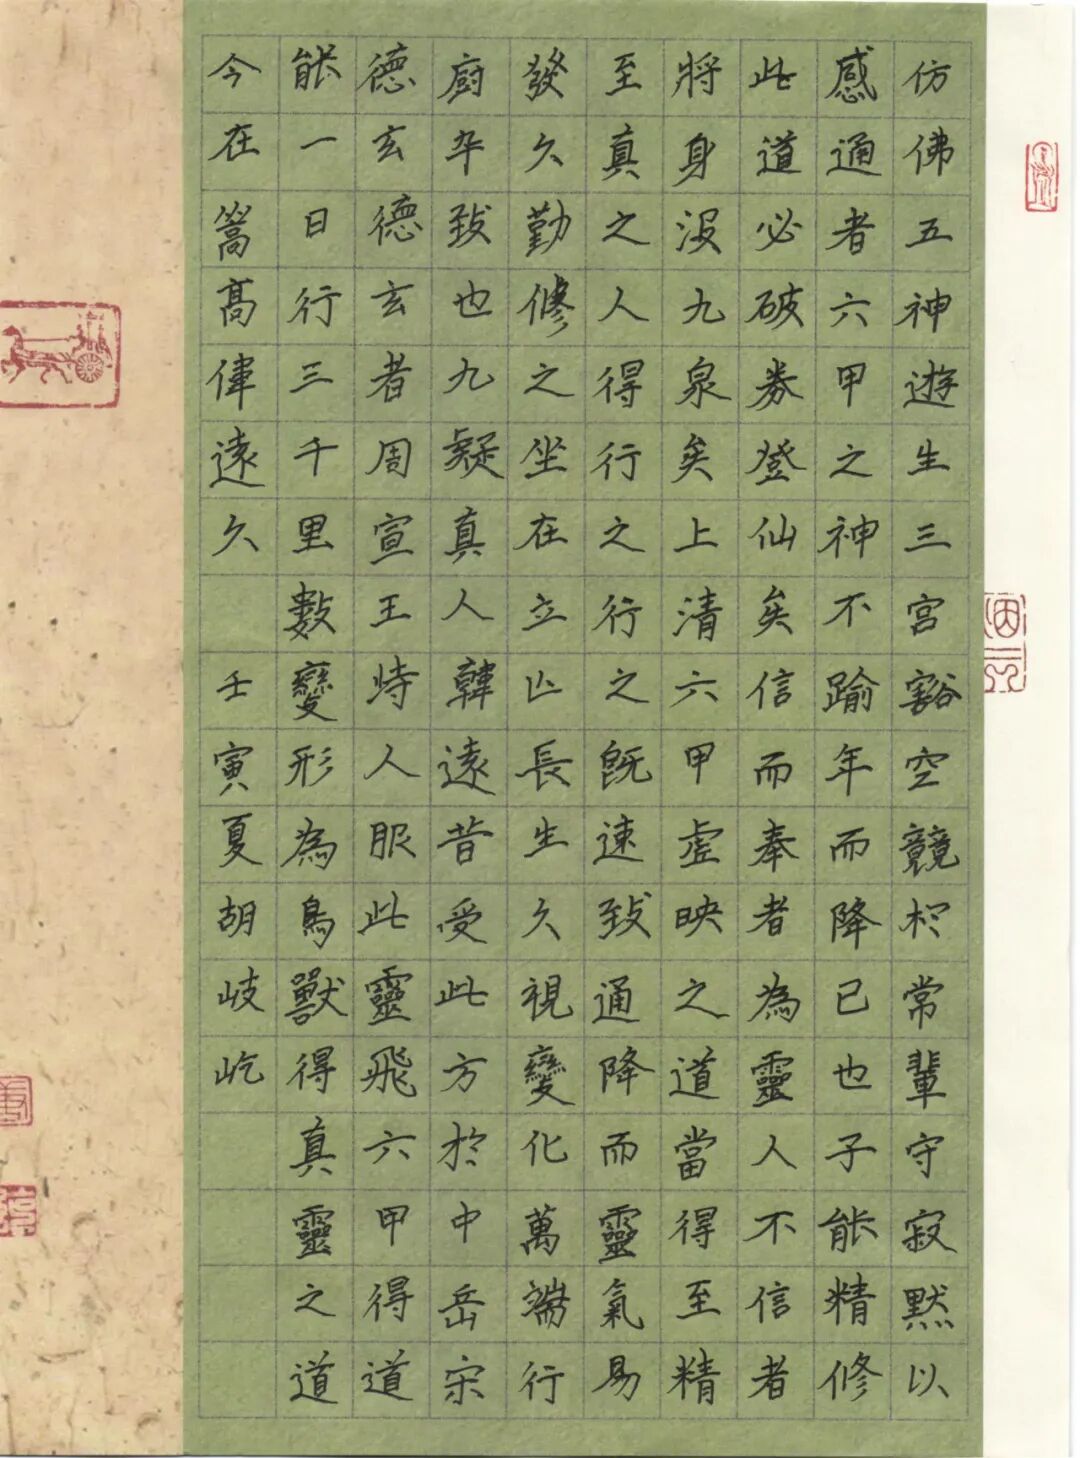 仿佛五神遊生三宮豁空競於常輩守寂默以
感通者六甲之神不踰年而降已也子能精修
此道必破券登仙矣信而奉者為靈人不信者
將身沒九泉矣上清六甲虛映之道當得至精
至真之人得行之行之既速致通降而靈氣易
發久勤修之坐在立亡長生久視變化萬端行
廚卒致也九疑真人韓遠昔受此方於中岳宋
德玄德玄者周宣王時人服此靈飛六甲得道
能一日行三千里數變形為鳥獸得真靈之道
今在嵩高偉遠久 壬寅夏胡岐屹